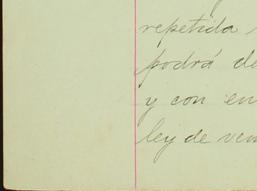 repetida
podrá de
y con en
ley de ven